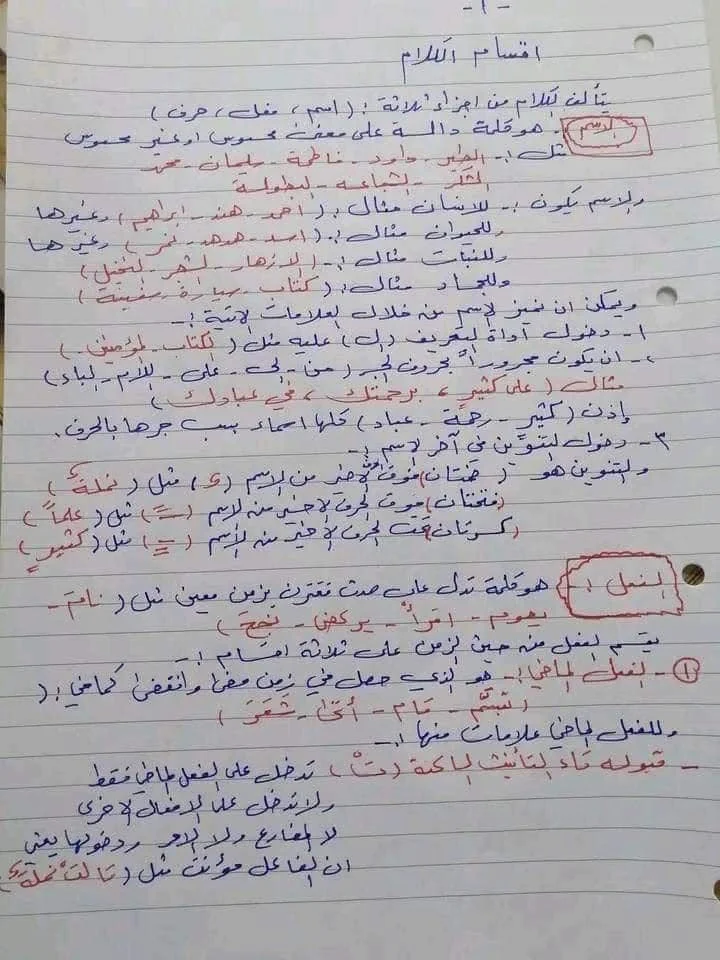 -١-
اقسام الكلام
يتألف الكلام من اجزاء ثلاثة :( اسم ، فعل ، حرف )
الاسم - هو كلمة دالة على معنى محسوس او غير محسوس
مثل :- الطير - داود - فاطمة - سليمان - محمد
الشكر - الشجاعه - البطولة
والاسم يكون :- للانسان مثال :( احمد - هند - ابراهيم ) وغيرها
وللحيوان مثال :- ( اسد - هدهد - نمر ) وغيرها
وللنبات مثال :- ( الازهار - الشجر - النخيل )
وللجماد مثال :( كتاب - سيارة - سفينة )
ويمكن ان نميز الاسم من خلال العلامات الاتية :-
١- دخول اداة التعريف (ال) عليه مثل ( الكتاب - المؤمنين - )
٢- ان يكون مجروراً بحروف الجر ( من - الى - على - اللام - الباء )
مثال ( على كثيرٍ ، برحمتك ، في عبادك )
وإذن ( كثير - رحمة - عباد ) كلها اسماء بسبب جرها بالحرف .
٣- دخول التنوين في آخر الاسم :-
والتنوين هو ( ضمتان ) فوق الحرف الاخير من الاسم ( ٌ ) مثل ( نملةٌ )
( فتحتان ) فوق الحرف الاخير من الاسم ( ً ) مثل ( علماً )
( كسرتان ) تحت الحرف الاخير من الاسم ( ٍ ) مثل ( كثيرٍ )
الفعل :- هو كلمة تدل على حدث مقترن بزمن معين مثل ( نامَ -
يصوم - اقرأْ - يركض - نجحَ )
يقسم الفعل من حيث الزمن على ثلاثة اقسام :-
١- الفعل الماضي :- هو الذي حصل في زمن مضى وانقضى كما في :(
( تبسَّم - قام - أتى - شَعَرَ )
وللفعل الماضي علامات منها :-
- قبوله تاء التأنيث الساكنة ( تْ ) تدخل على الفعل الماضي فقط
ولا تدخل على الافعال الاخرى
لا المضارع ولا الامر ودخولها يعني
ان الفاعل مؤنث مثل ( قالتْ نملةٌ )